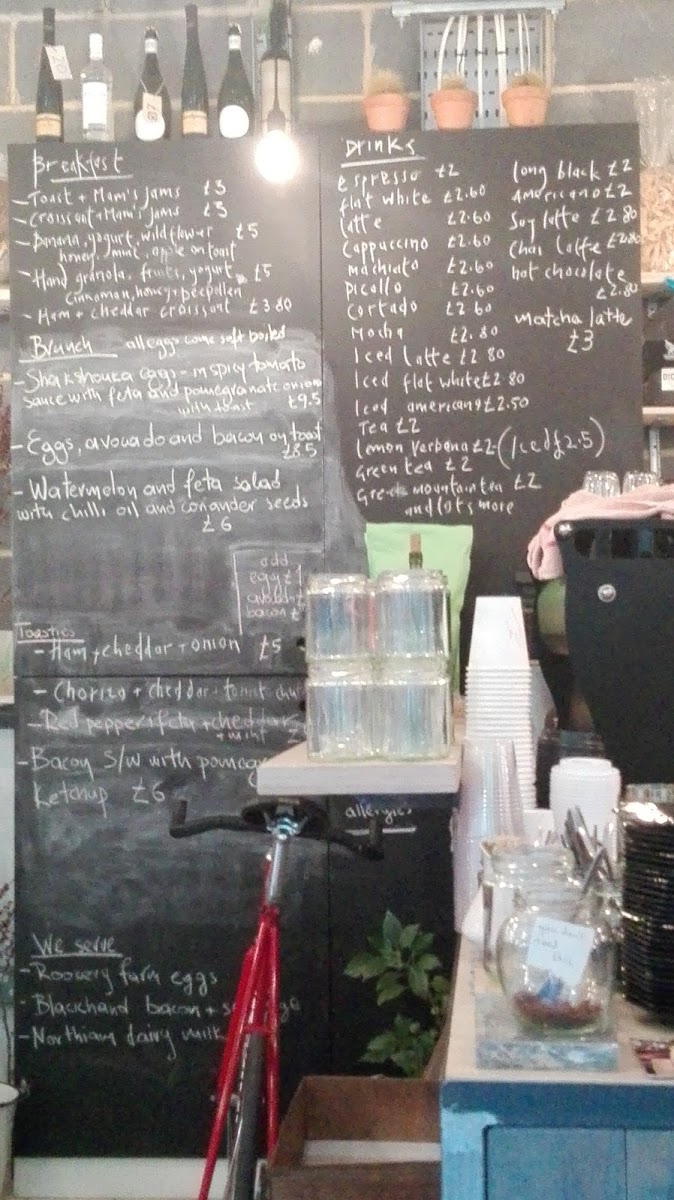 Breakfast
- Toast + Mam's jams £3
- Croissant + Mam's jams £3
- Banana, yogurt, wild flower £5
honey, mint, apple on toast
- Hand granola, fruits, yogurt, £5
cinnamon, honey + beepollen
- Ham + cheddar croissant £3 80
Brunch all eggs come soft boiled
- Shakshouka eggs - in spicy tomato
sauce with feta and pomegranate onion
with toast £9.5
- Eggs, avocado and bacon on toast
£8.5
- Watermelon and feta salad
with chilli oil and coriander seeds
£6
add
egg £1
avocado
bacon
Toasties
- Ham + cheddar + onion £5
- Chorizo + cheddar + tomato
- Red peppers + feta + cheddar
+ mint
- Bacon S/w with pomeg
Ketchup £6
We serve
- Roovery farm eggs
- Blackhand bacon +
- Northiam dairy milk
Drinks
espresso £2
flat white £2.60
latte £2.60
Cappuccino £2.60
Machiato £2.60
Picollo £2.60
Cortado £2 60
Mocha £2.80
Iced latte £2 80
Iced flat white £2 80
Iced americano £2.50
Tea £2
lemon verbena £2 (Iced £2.5)
Green tea £2
Greek mountain tea £2
and lots more
long black £2
Americano £2
Soy latte £2 80
Chai latte £2.80
hot chocolate
£2.80
matcha latte
£3
allergies